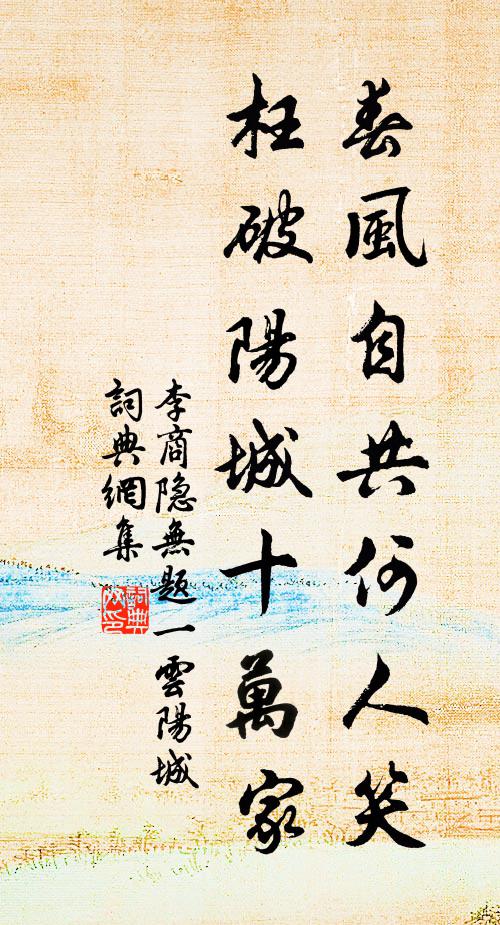 春風自共何人笑
枉破陽城十萬家
李商隐無题一雲陽城
詞典網集